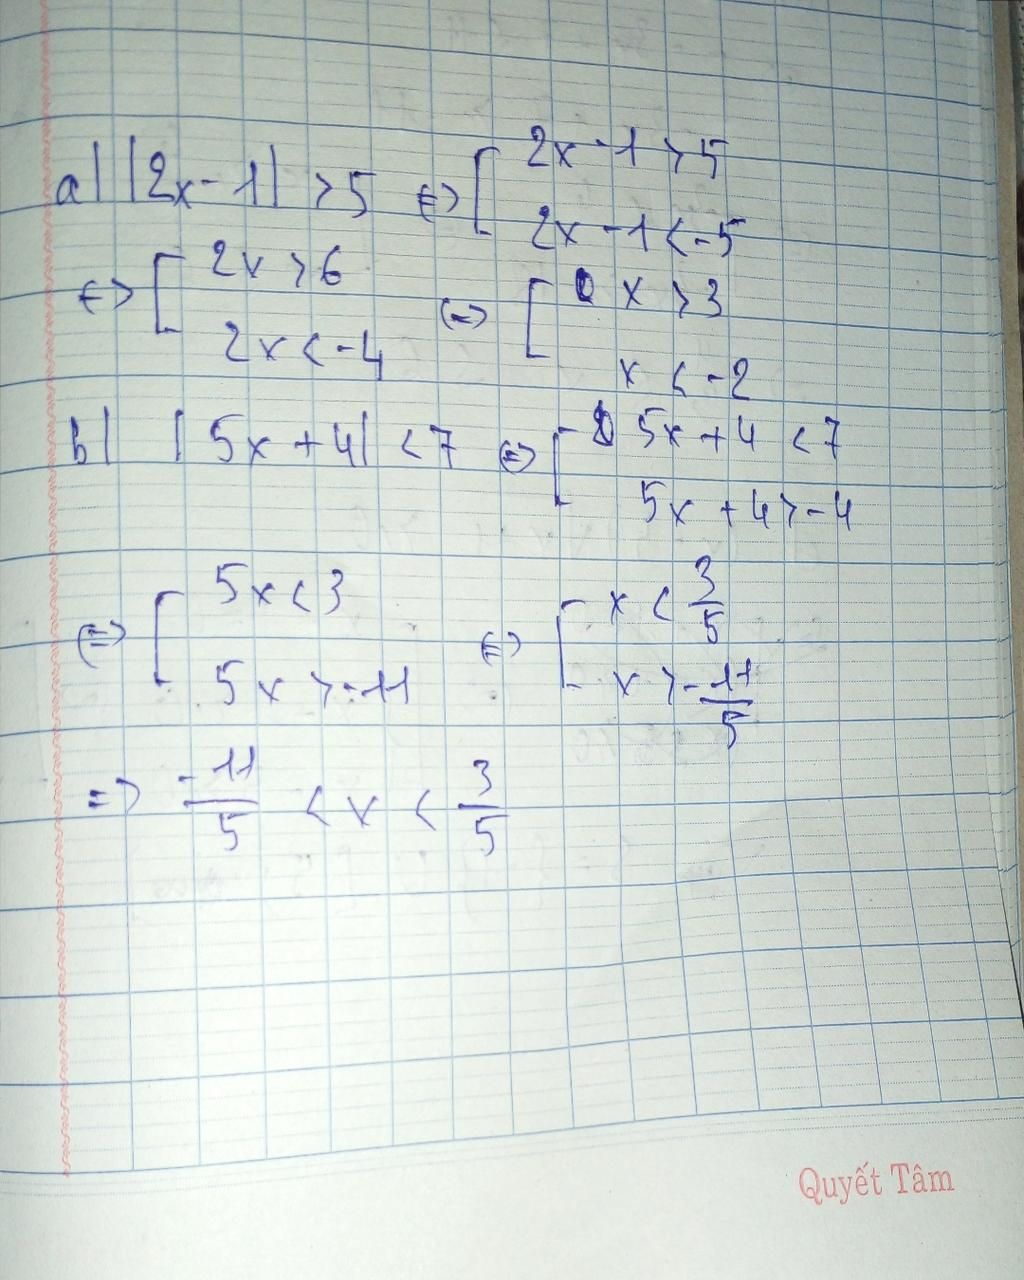 a) |2x - 1| > 5 <=> [ 2x - 1 > 5
2x - 1 < -5
<=> [ 2x > 6
2x < -4
<=> [ x > 3
x < -2
b) | 5x + 4| < 7 <=> [ 5x + 4 < 7
5x + 4 > -4
<=> [ 5x < 3
5x > -11
<=> [ x < 3/5
x > -11/5
=> -11/5 < x < 3/5
Quyết Tâm